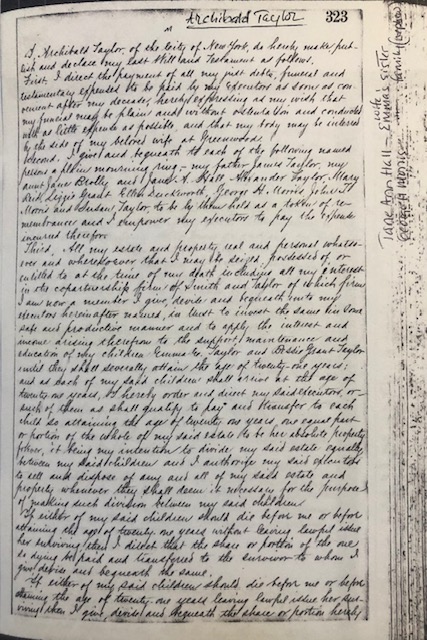 Archibald Taylor
323
I, Archibald Taylor, of the City of New York, do hereby make pub-
lish and declare my last Will and Testament as follows.
First. I direct the payment of all my just debts, funeral and
testamentary expenses to be paid by my executors as soon as con-
venient after my decease, hereby expressing as my wish that
my funeral may be plain and without ostentation and conducted
with as little expense as possible, and that my body may be interred
by the side of my beloved wife at Greenwood.
Second. I give and bequeath to each of the following named
persons a plain mourning ring: my father James Taylor, my
aunt Jane and A. Hall Alexander Taylor, Mary
Lizzie Grant George H. Morris, John H.
Morris and Taylor, to be by them held as a token of re-
membrance and I empower my executors to pay the expense
incurred therefor.
Third. All my estate and property real and personal whatso-
ever and wheresoever that I may be seized, possessed of or
entitled to at the time of my death including all my interest
in the copartnership firm of Smith and Taylor of which firm
I am now a member I give, devise and bequeath unto my
executors hereinafter named, in trust to invest the same in some
safe and productive manner and to apply the interest and
income arising therefrom to the support, maintenance and
education of my children Taylor and Grant Taylor
until they shall severally attain the age of twenty-one years;
and as each of my said children shall arrive at the age of
twenty one years, I hereby order and direct my said executors or
such of them as shall qualify to pay and transfer to each
child so attaining the age of twenty one years, one equal part
or portion of the whole of my said estate to be her absolute property
forever, it being my intention to divide my said estate equally
between my said children and I authorize my said executors
to sell and dispose of any and all of my said estate and
property whenever they shall deem it necessary for the purpose
of making such division between my said children.
If either of my said children should die before me or before
attaining the age of twenty one years without leaving lawful issue
her surviving then I direct that the share or portion of the one
so dying be paid and transferred to the survivor to whom I
give devise and bequeath the same.
If either of my said children should die before me or before
attaining the age of twenty one years leaving lawful issue her sur-
viving then I give, devise and bequeath the share or portion hereby
Jane Ann Hall - Emma's sister
wife
George H Morris -